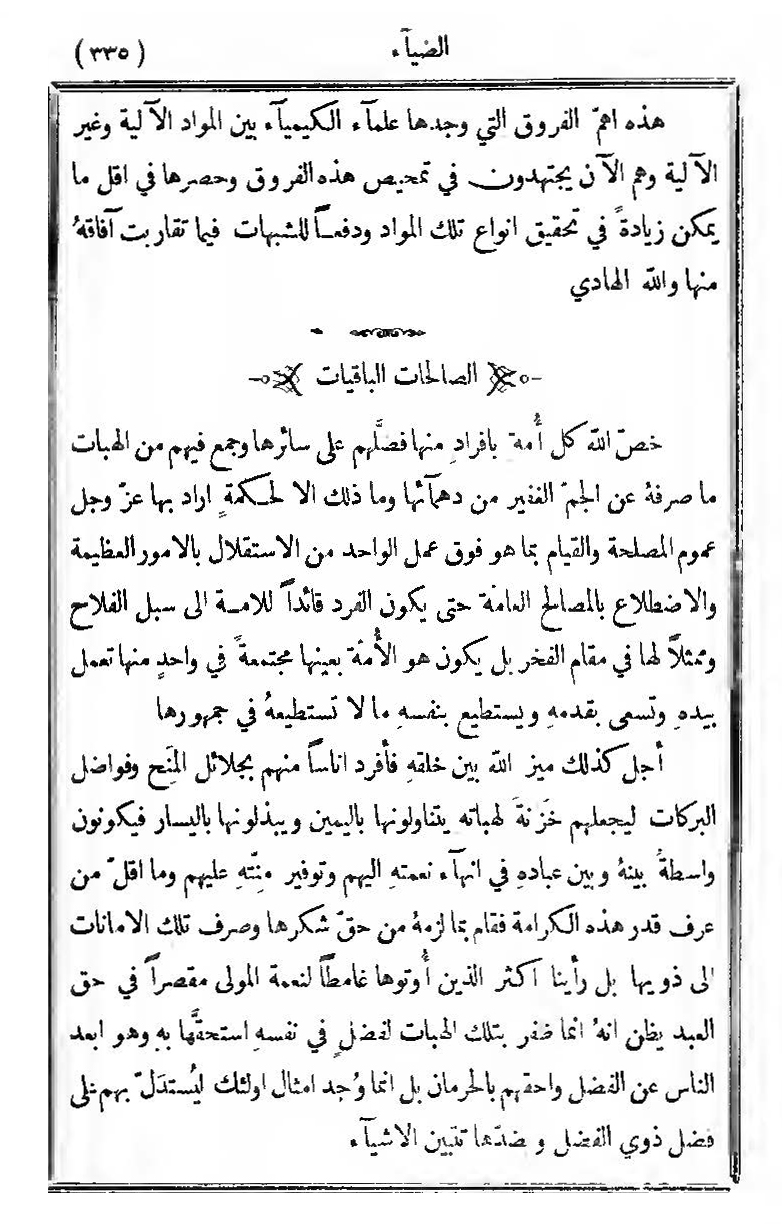 الضيآء
(٣٣٥)
هذه اهمّ الفروق التي وجدها علمآء الكيميآء بين المواد الآلية وغير
الآلية وهم الآن يجتهدون في تمحيص هذه الفروق وحصرها في اقل ما
يمكن زيادةً في تحقيق انواع تلك المواد ودفعاً للشبهات فيما تقاربت آفاقهُ
منها والله الهادي
الصالحات الباقيات
خصّ الله كل أُمة بافرادٍ منها فضَّلهم على سائرها وجمع فيهم من الهبات
ما صرفهُ عن الجمّ الغفير من دهمآئها وما ذلك الا لحكمةٍ اراد بها عزّ وجل
عموم المصلحة والقيام بما هو فوق عمل الواحد من الاستقلال بالامور العظيمة
والاضطلاع بالمصالح العامّة حتى يكون الفرد قائداً للامة الى سبل الفلاح
وممثلاً لها في مقام الفخر بل يكون هو الأُمّة بعينها مجتمعةً في واحدٍ منها تعمل
بيدهِ وتسعى بقدمهِ ويستطيع بنفسهِ ما لا تستطيعهُ في جمهورها
أجل كذلك ميز الله بين خلقهِ فأفرد اناساً منهم بجلائل المِنَح وفواضل
البركات ليجعلهم خَزَنةً لهباته يتناولونها باليمين ويبذلونها باليسار فيكونون
واسطةً بينهُ وبين عبادهِ في انهآء نعمتهِ اليهم وتوفير مِنّتهِ عليهم وما اقلّ من
عرف قدر هذه الكرامة فقام بما لزمهُ من حقّ شكرها وصرف تلك الامانات
الى ذويها بل رأينا اكثر الذين أُوتوها غامطاً لنعمة المولى مقصراً في حق
العبد يظن انهُ انما ظفر بتلك الهبات لفضلٍ في نفسهِ استحقَّها بهِ وهو ابعد
الناس عن الفضل واحقهم بالحرمان بل انما وُجد امثال اولئك ليُستدَلّ بهم على
فضل ذوي الفضل وبضدّها تتبين الاشيآء